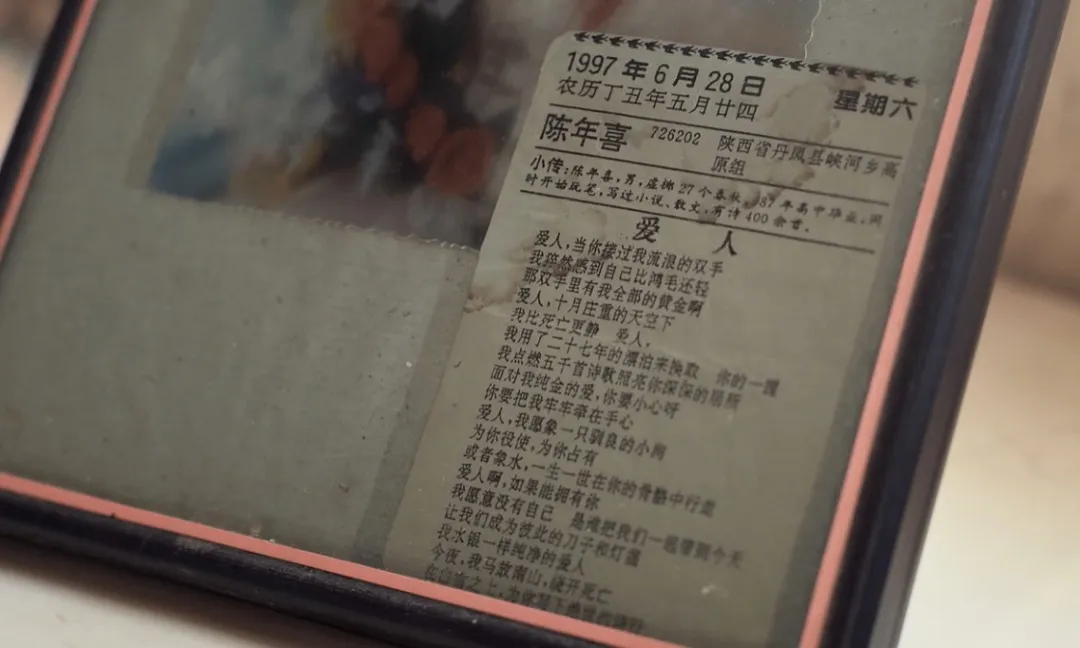 1997年6月28日 星期六
农历丁丑年五月廿四
陈年喜 726202 陕西省丹凤县峡河乡高
原组
小传:陈年喜,男,虚掷27个春秋,87年高中毕业,同
时开始玩笔,写过小说、散文,有诗400余首。
爱 人
爱人,当你接过我流浪的双手
我猝然感到自己比鸿毛还轻
那双手里有我全部的黄金啊
爱人,十月庄重的天空下
我比死亡更静 爱人,
我用了二十七年的漂泊来换取 你的一
我点燃五千首诗歌照亮你深深的居所
面对我纯金的爱,你要小心呀
你要把我牢牢牵在手心
爱人,我愿象一只驯良的小狗
为你役使,为你占有
或者象水,一生一世在你的骨骼中行走
爱人啊,如果能拥有你
我愿意没有自己 是谁把我们一起带到今天
让我们成为彼此的刀子和灯盏
我水银一样纯净的爱人
今夜,我马放南山,绕开死亡
在白雪之上,为你写下